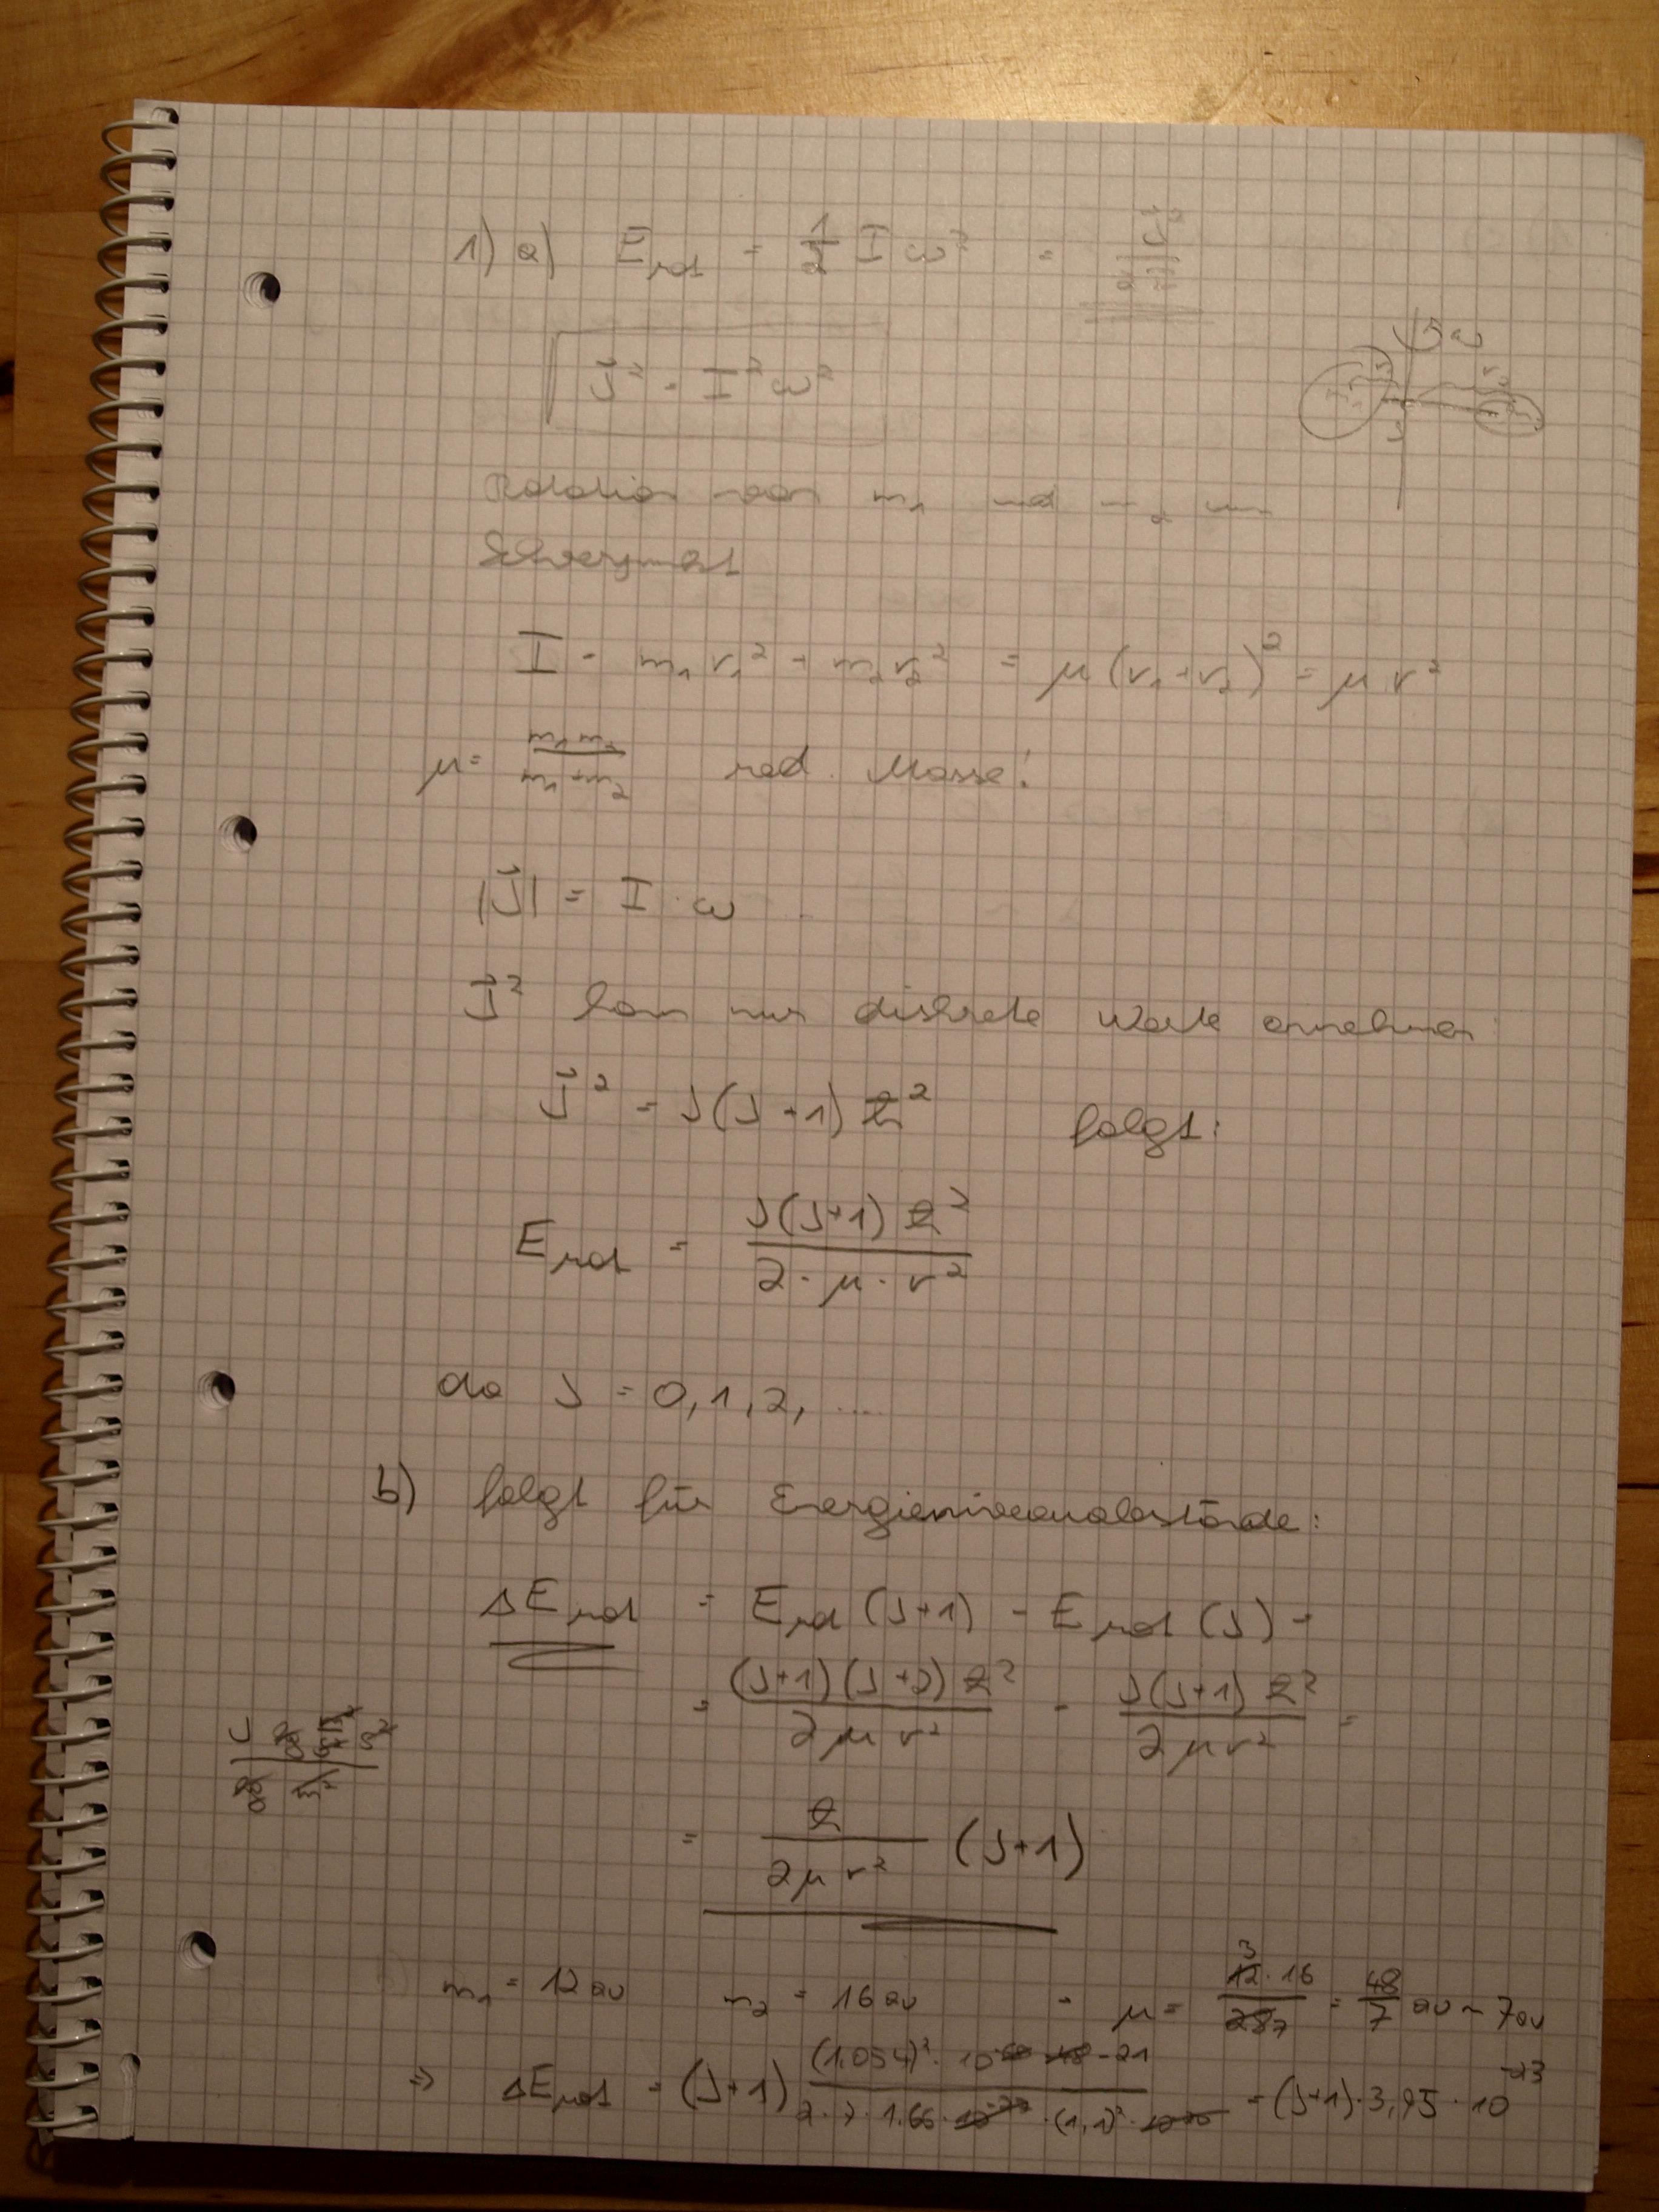 1) a) E_rot = 1/2 I ω² = J⃗²/2I
J⃗² = I² ω²
ω
Rotation von m₁ und m₂ um
Schwerpunkt
I = m₁ r₁² + m₂ r₂² = μ (r₁ + r₂)² = μ r²
μ = m₁ m₂ / m₁ + m₂ red. Masse!
|J⃗| = I · ω
J⃗² kann nur diskrete Werte annehmen
J⃗² = J(J+1) ħ² folgt:
E_rot = J(J+1) ħ² / 2 · μ · r²
da J = 0, 1, 2, ....
b) folgt für Energieniveauabstände:
ΔE_rot = E_rot (J+1) - E_rot (J) =
= (J+1)(J+2) ħ² / 2 μ r² - J(J+1) ħ² / 2 μ r² =
= ħ / 2 μ r² (J+1)
m₁ = 12 au m₂ = 16 au - μ = 12 · 16 / 28 = 48/7 au ~ 7 au
⇒ ΔE_rot = (J+1) = (J+1) · 3,95 · 10⁻²³